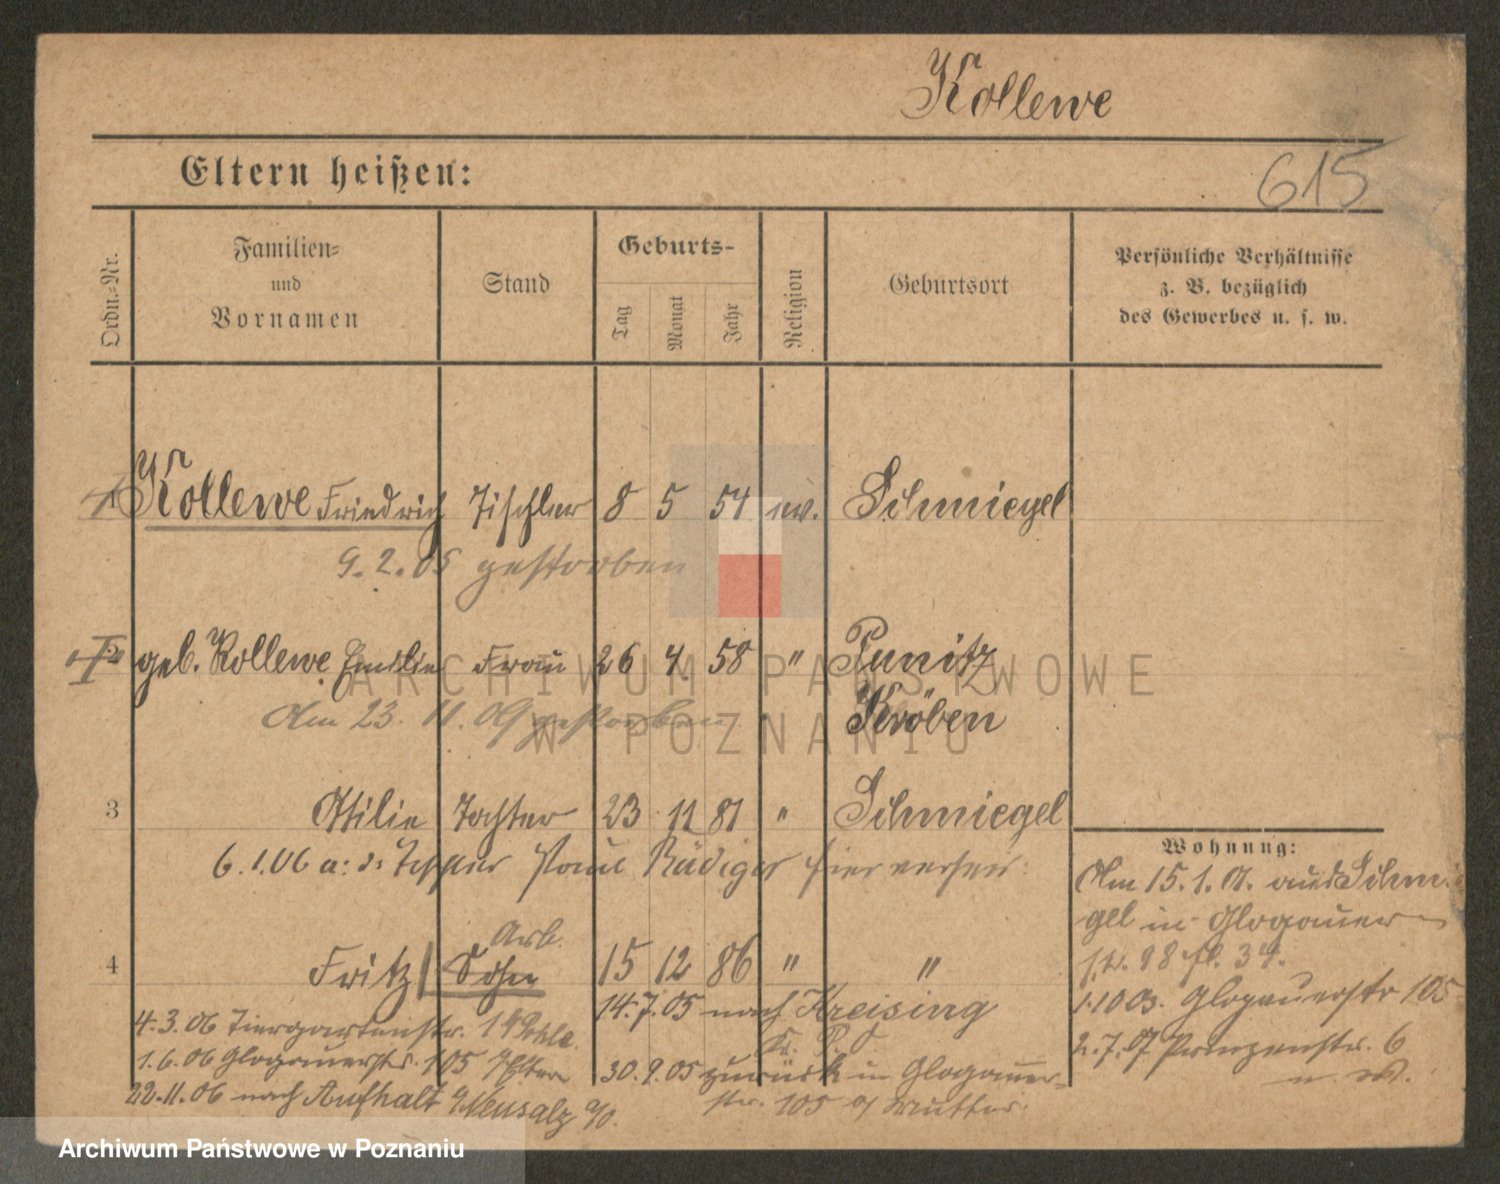 Kollewe
Eltern heißen:
615
Ordn.-Nr.
Familien-
und
Vornamen
Stand
Geburts-
Tag
Monat
Jahr
Religion
Geburtsort
Persönliche Verhältnisse
z. B. bezüglich
des Gewerbes u. s. w.
Kollewe Friedrich Tischler 8 5 54 ev. Schmiegel
9.2.05 gestorben
geb. Kollewe Emilie Frau 26 4. 58 " Punitz
Kröben
Am 23. 11. 09 gestorben
3 Ottilie Tochter 23 11 81 " Schmiegel
6.1.06 a: d: Tischler Paul Rüdiger hier verh
Arb.
4 Fritz Sohn 15 12 86 " "
14.7.05 nach Kreising
Kr. P. O
30.9.05 zurück in Glogauer-
str. 105 Mutter.
4.3.06 Tiergartenstr. 1
1.6.06 Glogauerstr. 105 Eltern
22.11.06 nach Aufhalt Neusalz a/O.
Wohnung:
Am 15.1.01. aus Schmie-
gel in Glogauer-
str. 98 34.
1.10 03. Glogauerstr 105
2.7.07 Prinzenstr. 6
ARCHIWUM PAŃSTWOWE
W POZNANIU
Archiwum Państwowe w Poznaniu